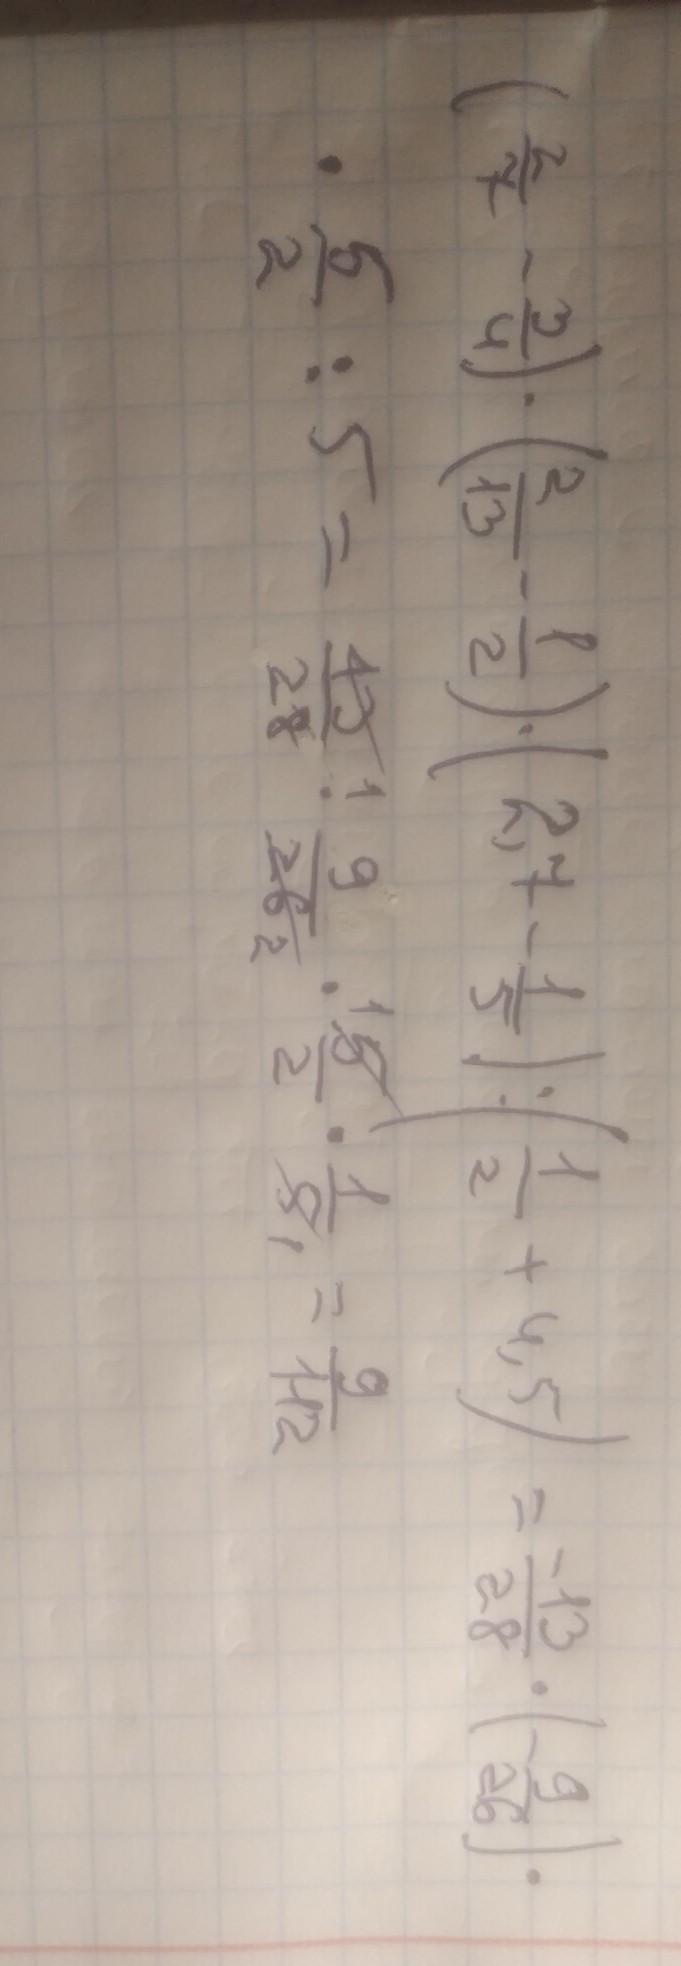 (2/7 - 3/4) · (2/13 - 1/2) · (2,7 - 1/5) : (1/2 + 4,5) = -13/28 · (-9/26) ·
· 5/2 : 5 = 13/28 · 9/26 · 5/2 · 1/5 = 9/112